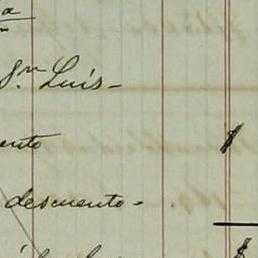 a
Sn. Luis-
ento $
descuento-
$